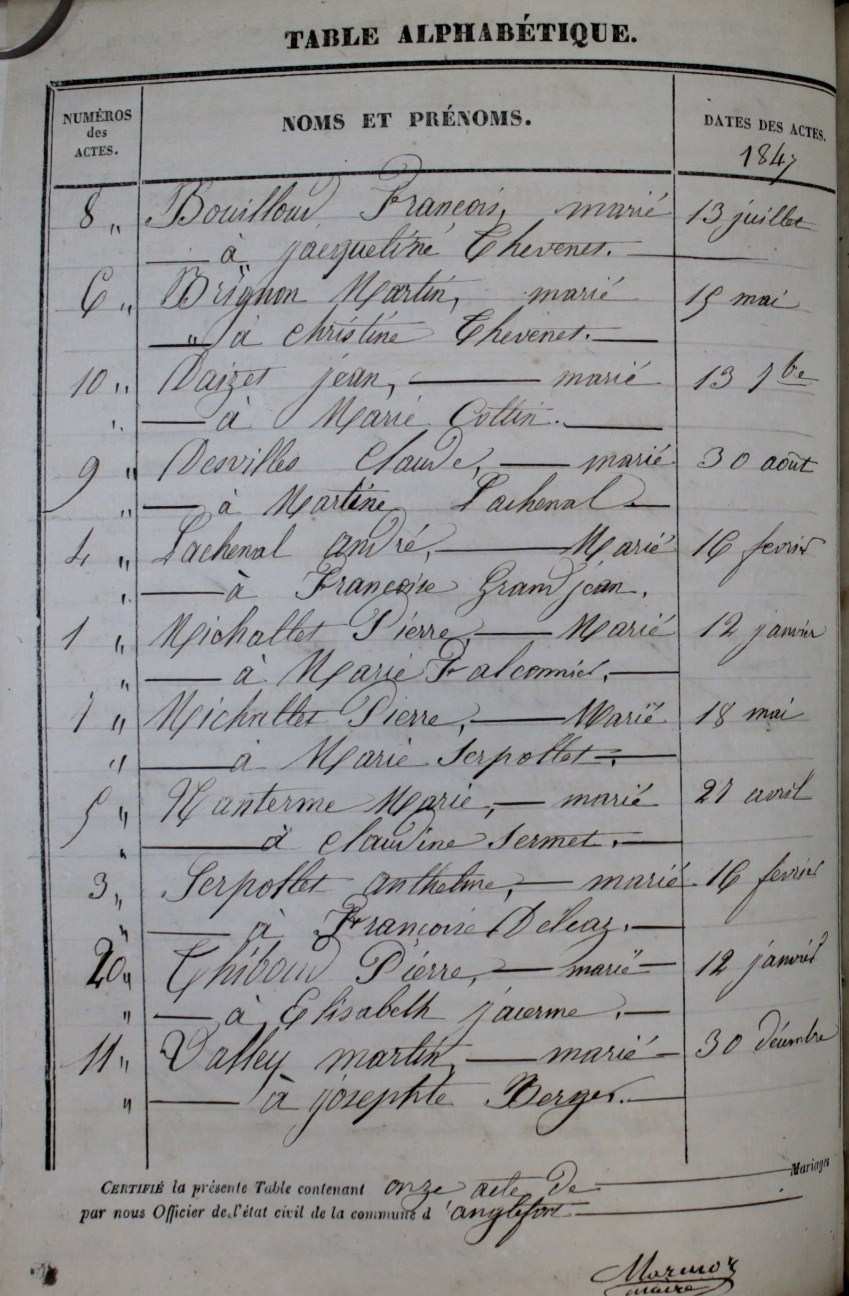 TABLE ALPHABÉTIQUE.
NUMÉROS des ACTES. NOMS ET PRÉNOMS. DATES DES ACTES.
1847
8 " Bouilloud François, marié 13 juillet
— à jacqueline Thevenet. —
6 " Brignon Martin, marié 15 mai
" à Christine Thevenet. —
10 " Daizet jean, — marié 13 7bre
" — à Marie Cottin. —
9 " Desvilles Claude, — marié 30 août
" — à Martine Lachenal —
4 " Lachenal andré, — Marié 16 fevrier
" — à Françoise Grandjean.
1 " Michallet Pierre, — Marié 12 janvier
" — à Marie Falconnier. —
7 " Michallet Pierre, — Marié 18 mai
" — à Marie Serpollet. —
5 " Nanterme Marie, — marié 27 avril
" — à Claudine Sermet. —
3 " Serpollet anthelme, — marié 16 fevrier
" — à Françoise —
2 " Thiboud Pierre, — marié — 12 janvier
" — à Elisabeth —
11 " Valley martin, — marié — 30 décembre
" — à josephte Berger. —
CERTIFIÉ la présente Table contenant onze acte de — Mariages
par nous Officier de l'état civil de la commune d'anglefort —
Marmoz
maire